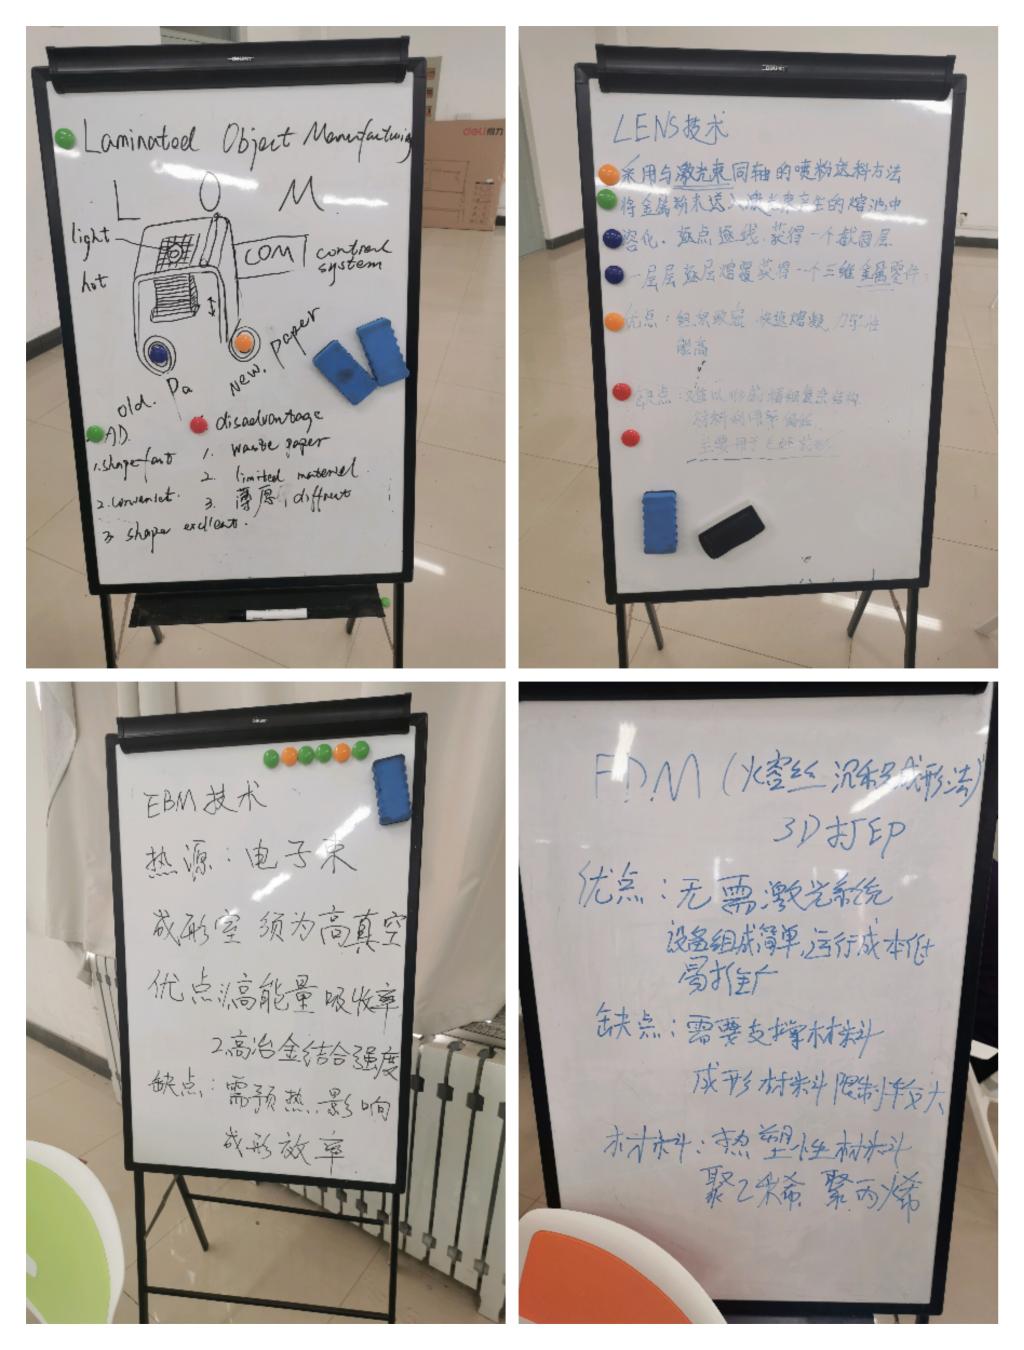 Laminatoed Object Manufacturing
L O M
light
hot
COM
control system
old. Pa
New. paper
AD.
1. shape fast
2. convenict.
3 shape excllent.
disadvantage
1. waste paper
2. limited material.
3. 薄厚, diffrent
deli 得力
LENS技术
采用与激光束同轴的喷粉送料方法
将金属粉末送入激光束产生的熔池中
熔化. 逐点逐线. 获得一个截面层
一层层逐层熔覆获得一个三维金属零件.
优点: 组织致密 快速熔凝. 力学性
能高
缺点: 难以形成 复杂结构
材料利用率偏低
主要用于
EBM技术
热源: 电子束
成形室 须为高真空
优点: 1.高能量吸收率
2.高冶金结合强度
缺点: 需预热.影响
成形效率
FDM (火容丝 沉积成形法)
3D打印
优点: 无需激光系统
设备组成简单,运行成本低
易推广
缺点: 需要支撑材料
成形材料限制较大
材料: 热塑性材料
聚乙烯. 聚丙烯